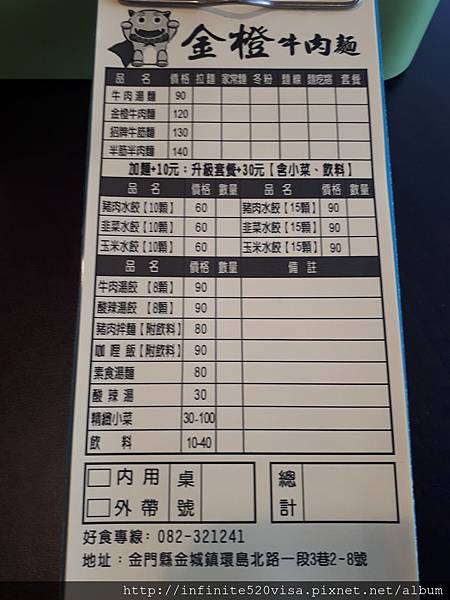 金橙牛肉麵
品 名 價格 拉麵 家常麵 冬粉 麵線 麵疙瘩 套餐
牛肉湯麵 90
金橙牛肉麵 120
招牌牛筋麵 130
半筋半肉麵 140
加麵+10元：升級套餐+30元【含小菜、飲料】
品 名 價格 數量 品 名 價格 數量
豬肉水餃【10顆】 60 豬肉水餃【15顆】 90
韭菜水餃【10顆】 60 韭菜水餃【15顆】 90
玉米水餃【10顆】 60 玉米水餃【15顆】 90
品 名 價格 數量 備 註
牛肉湯餃【8顆】 90
酸辣湯餃【8顆】 90
豬肉拌麵【附飲料】 80
咖哩飯【附飲料】 90
素食湯麵 80
酸辣湯 30
精緻小菜 30-100
飲 料 10-40
內用 桌號 總計
外帶
好食專線: 082-321241
地址：金門縣金城鎮環島北路一段3巷2-8號
http://infinite520visa.pixnet.net/album